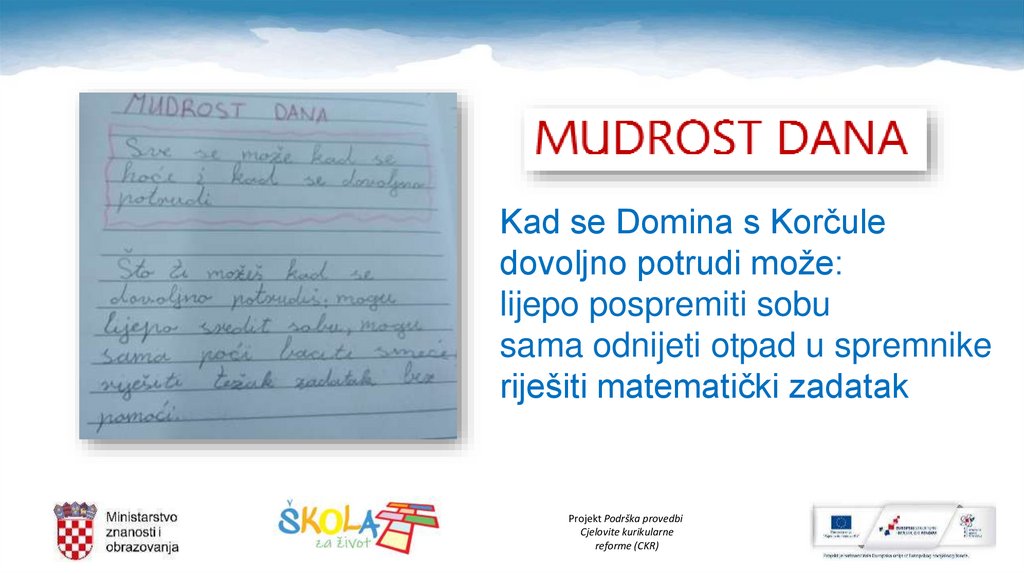 MUDROST DANA
Sve se može kad se
hoće i kad se dovoljno
potrudi
Što ti možeš kad se
dovoljno potrudiš, mogu
lijepo sredit sobu, mogu
sama poći baciti smeće
riješiti težak zadatak bez
pomoći.
MUDROST DANA
Kad se Domina s Korčule
dovoljno potrudi može:
lijepo pospremiti sobu
sama odnijeti otpad u spremnike
riješiti matematički zadatak
Ministarstvo
znanosti i
obrazovanja
ŠKOLA
za život
Projekt Podrška provedbi
Cjelovite kurikularne
reforme (CKR)